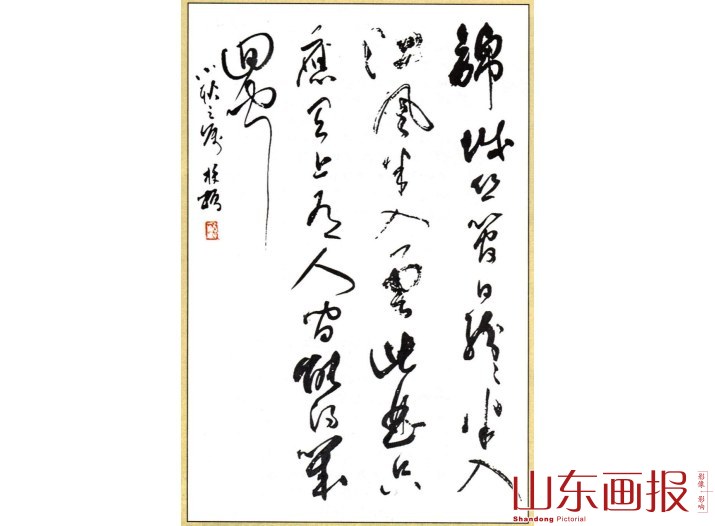 錦城丝管日紛々半入
江風半入雲此曲只
應天上有人间能得幾
回闻
小秋之嘱
山东画报
影像·影响
Shandong Pictorial